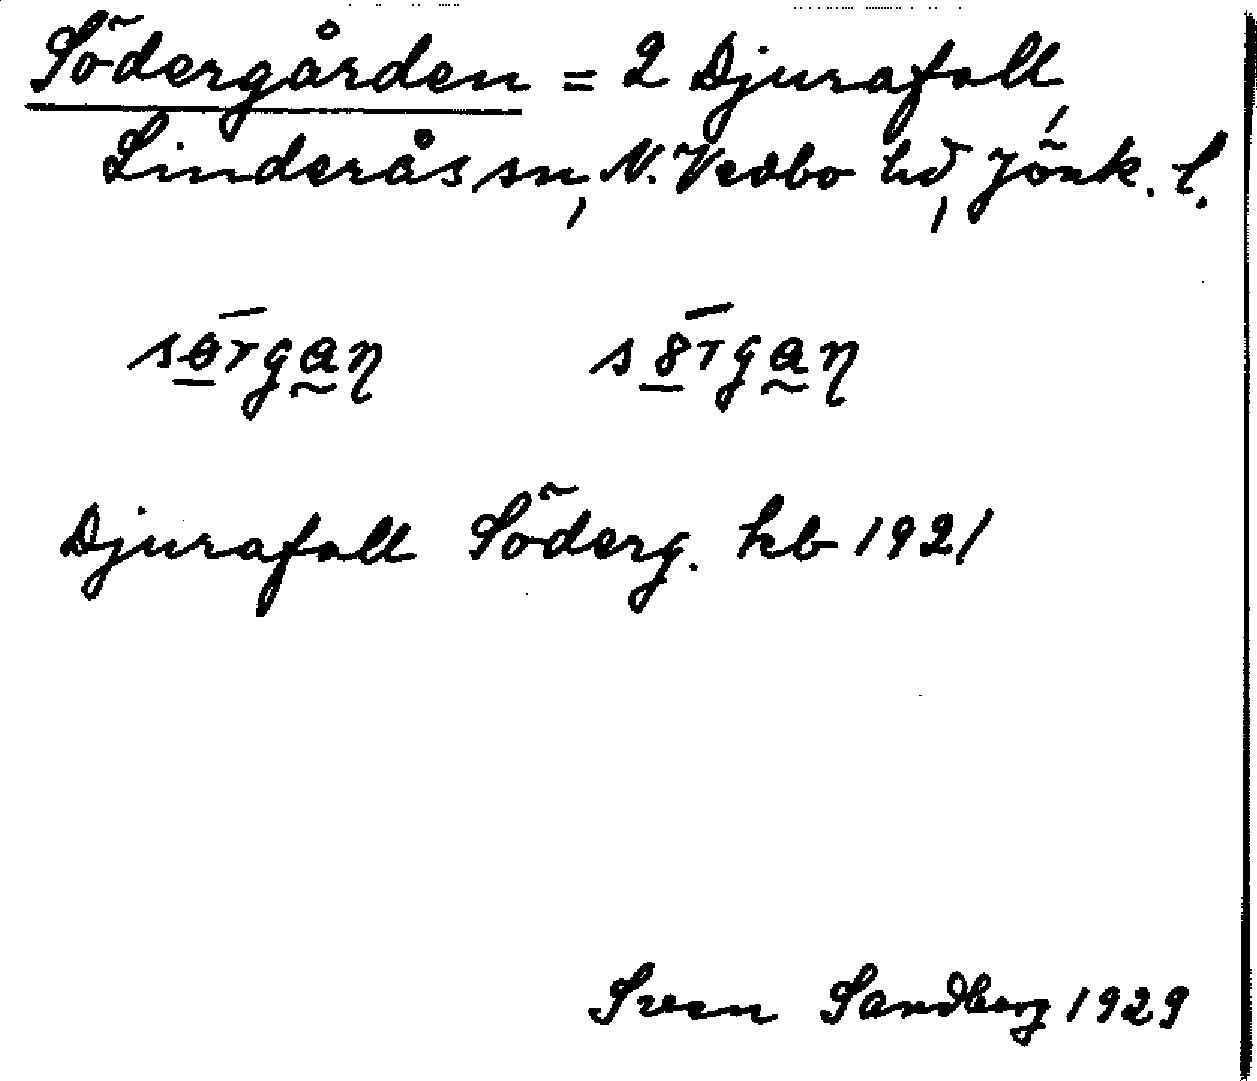 Södergården = 2 Djurafall,
Linderås sn, N. Vedbo hd, Jönk. l.
sɵ̱rga̰ŋ s8̱rga̰ŋ
Djurafall Söderg. kb 1921
Sven Sandberg 1929